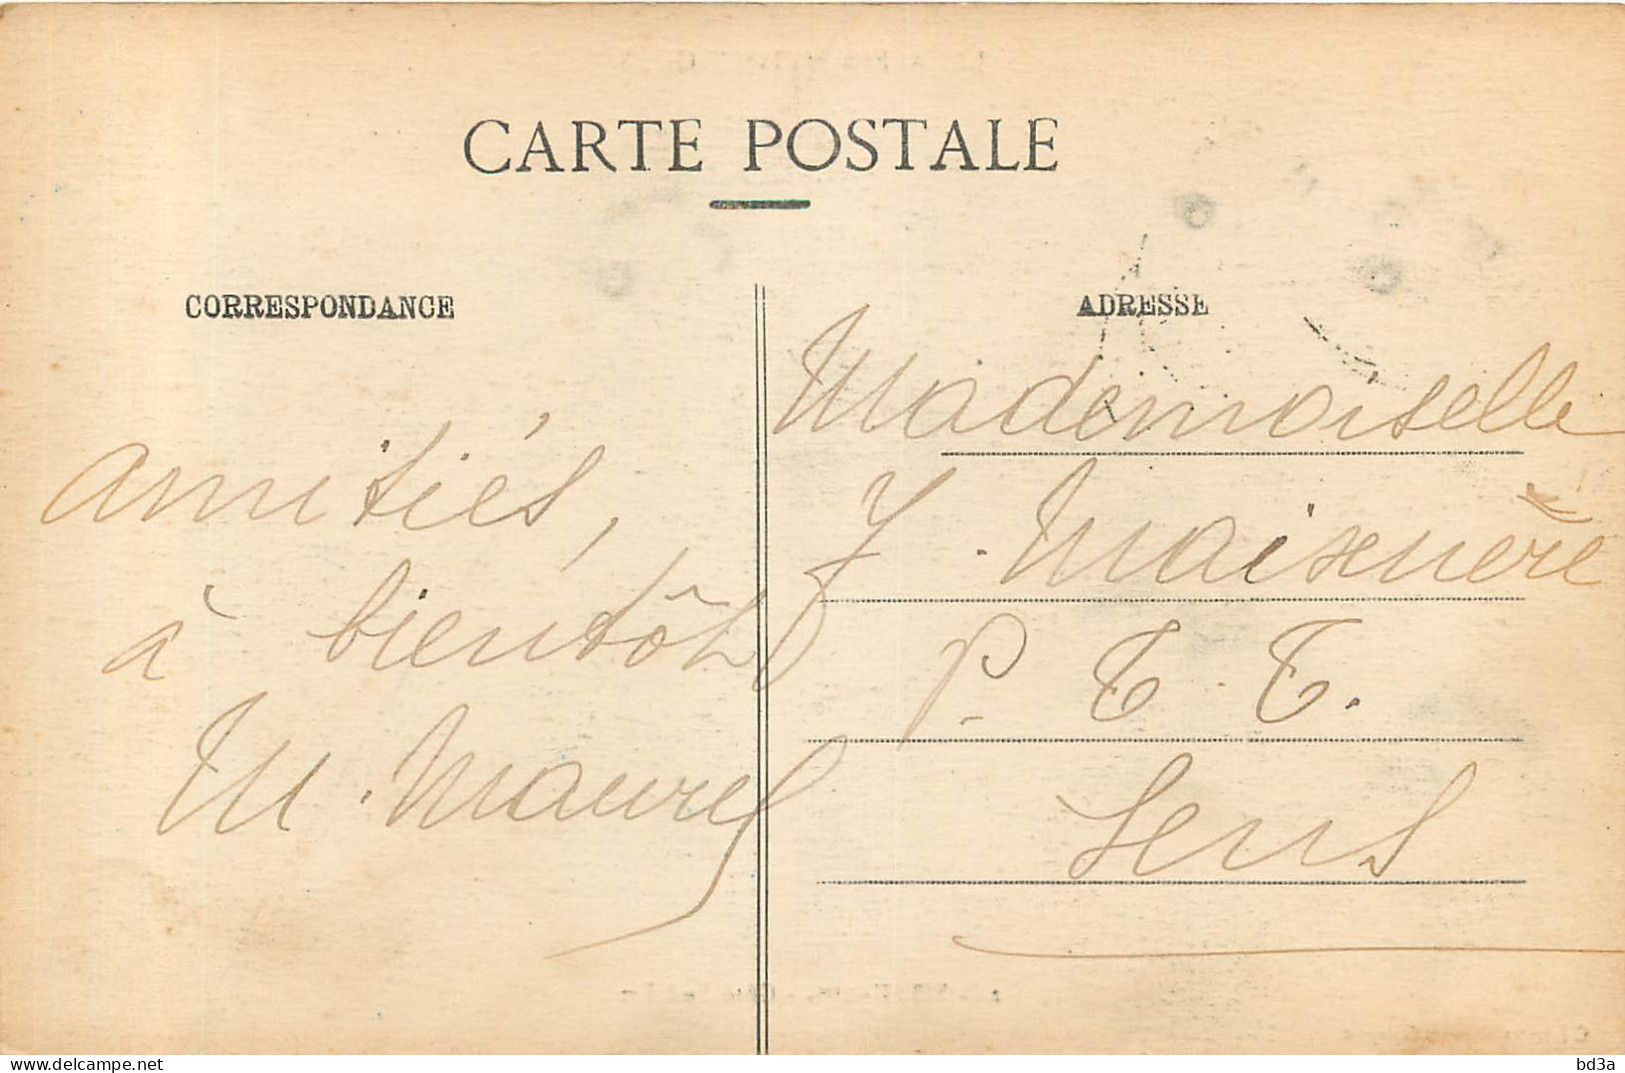 CARTE POSTALE
CORRESPONDANCE
amitiés,
à bientôt
M. Maurel
ADRESSE
Mademoiselle
J. 
P. T. T.
Sens
www.delcampe.net
bd3a